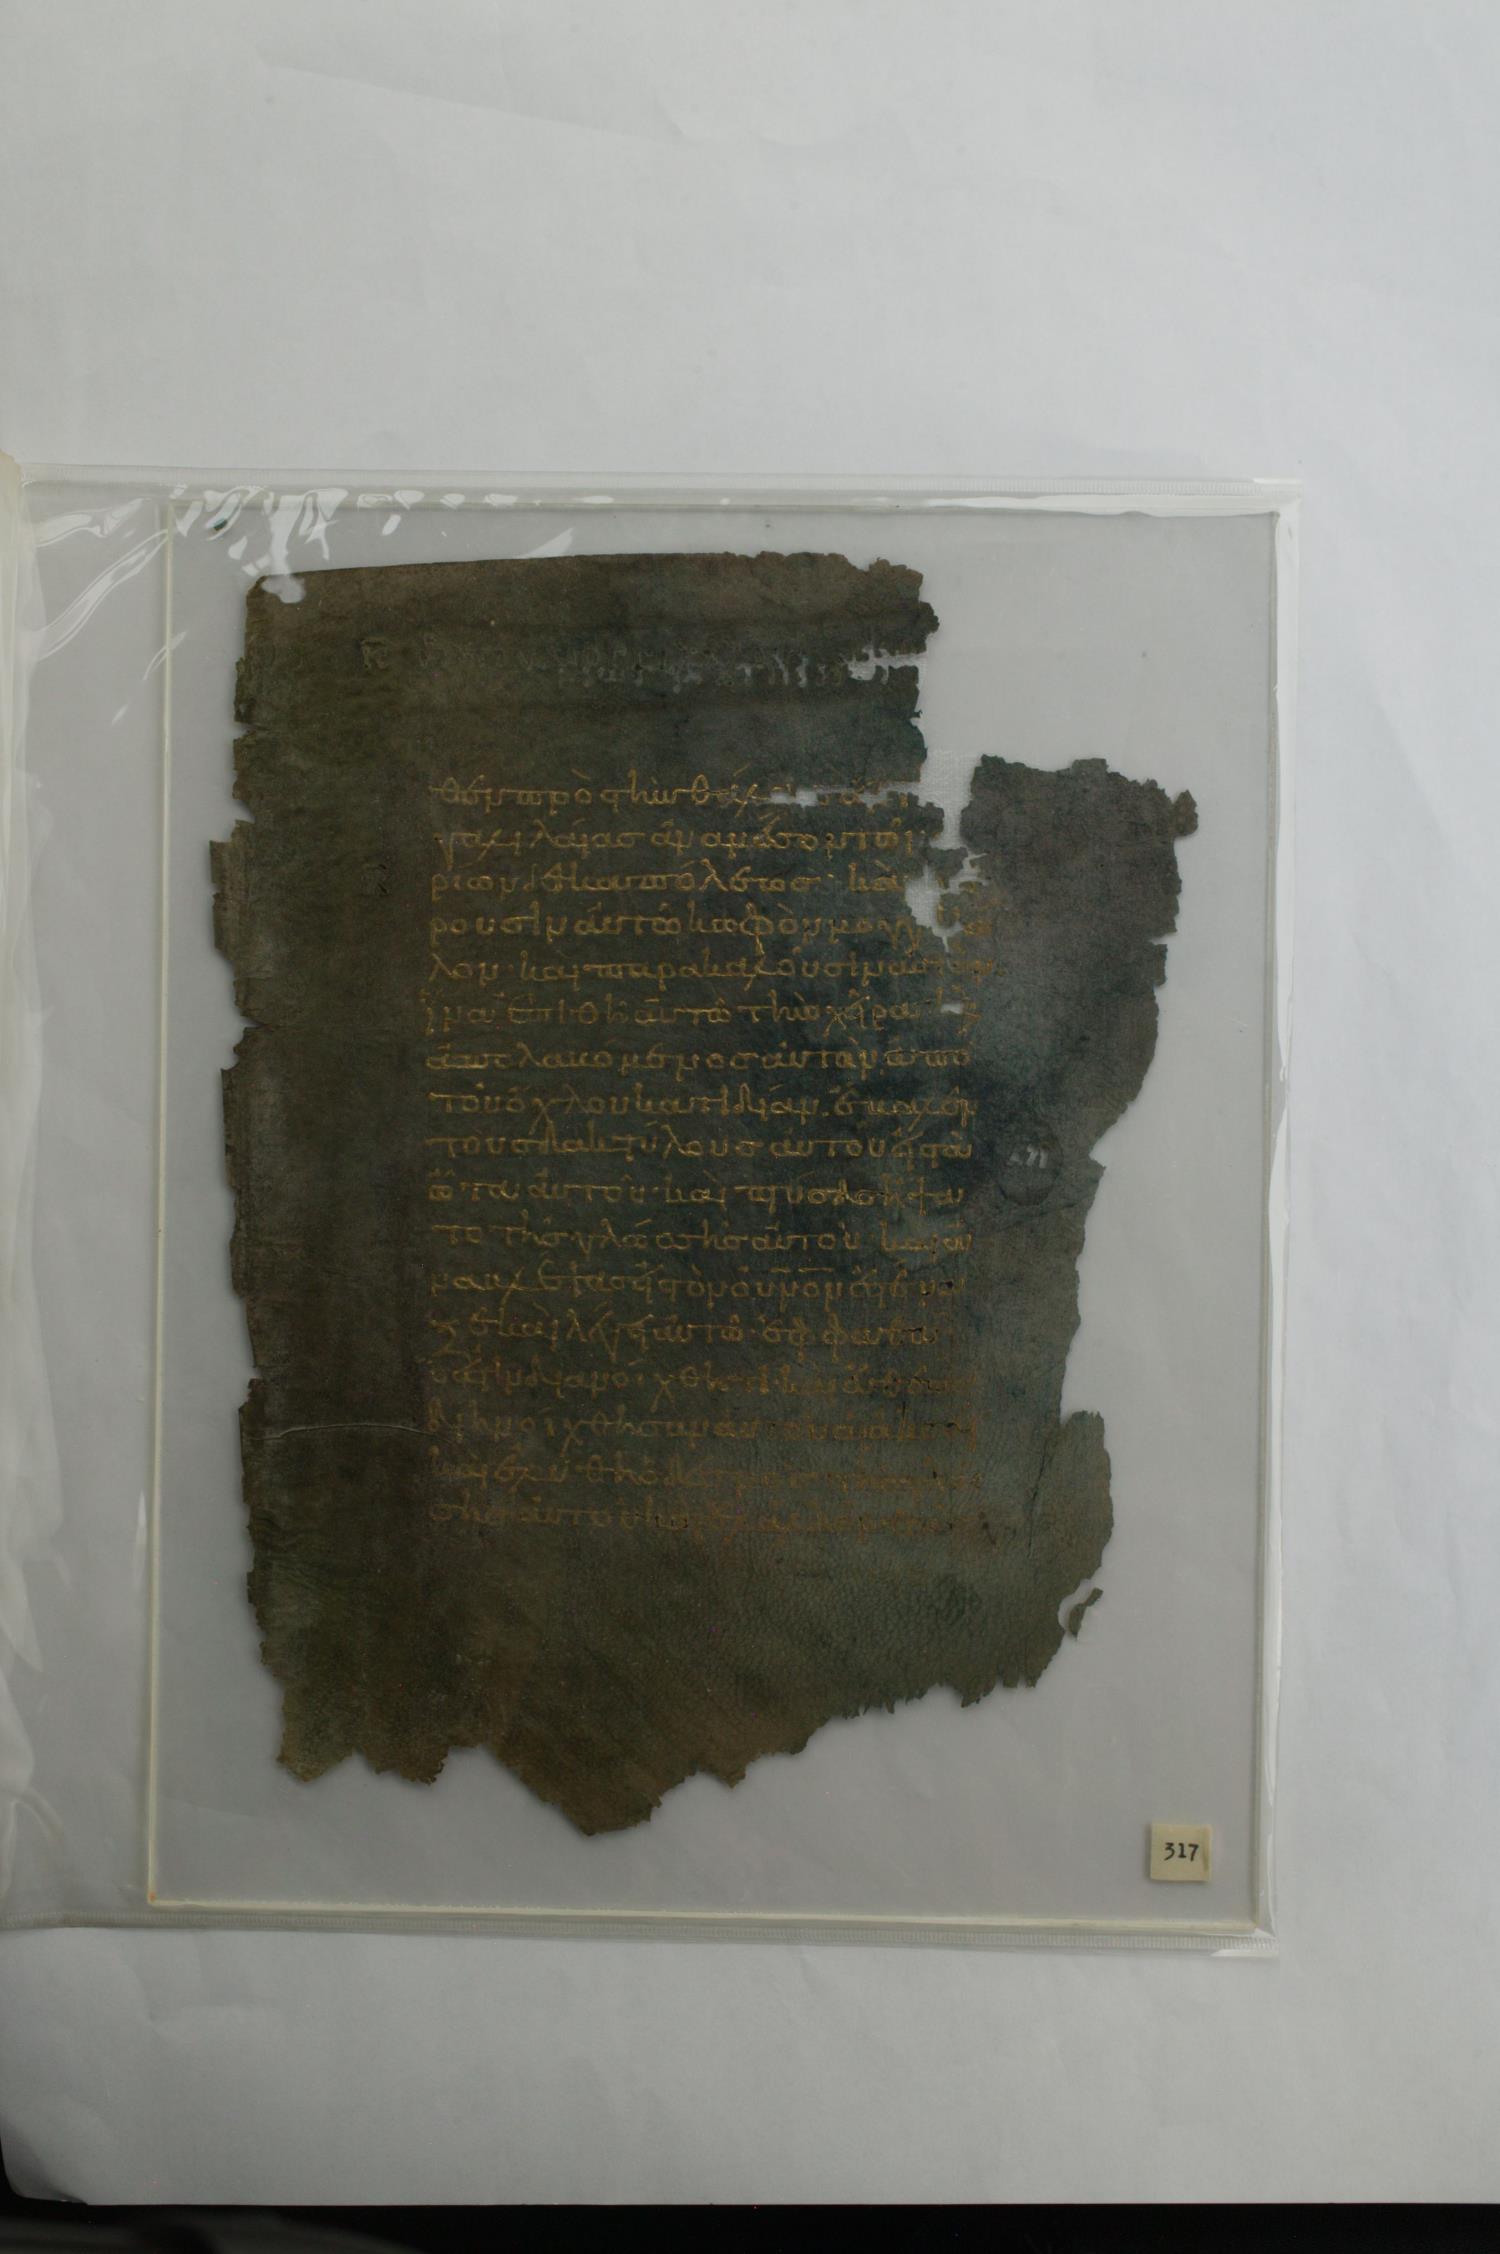 θεν πρὸς τὴν θάλ
γαλιλαίας ἀναμέσον τῶν
ρίων δεκαπόλεως· καὶ
ρουσιν αὐτῶ κωφὸν μογγ
λον· καὶ παρακαλοῦσιν αὐτὸν
ἵνα ἐπιθῆ αὐτῶ τὴν χεῖρα
ἀπολαβόμενος αὐτὸν ἀπὸ
τοῦ ὄχλου κατιδίαν· ἔβαλεν
τοὺς δακτύλους αὐτοῦ εἰς τὰ
ὦτα αὐτοῦ· καὶ πτύσας ἥψα
το τῆς γλώσσης αὐτοῦ· καὶ ἀ
ναβλέψας εἰς τὸν οὐνον ἐστένα
ξε καὶ λέγει αὐτῶ· ἐφφαθά
ὅ ἐστιν διανοίχθητι καὶ εὐθέως
διηνοίχθησαν αὐτοῦ αἱ ἀκοαὶ
καὶ ἐλύθη ὁ δεσμὸς τῆς γλώσ
σης αὐτοῦ καὶ ἐλάλει
317